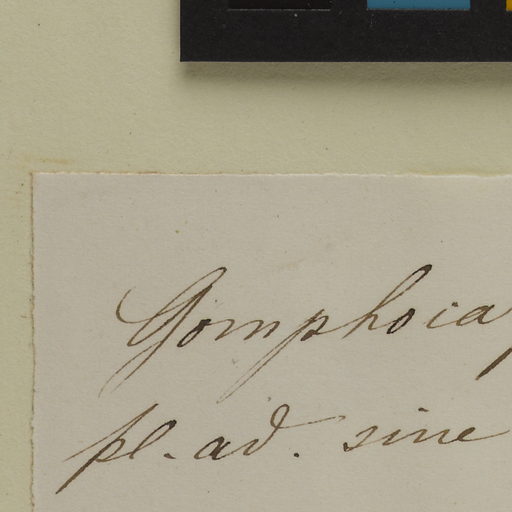 Gomphoia
pl. ad. sine